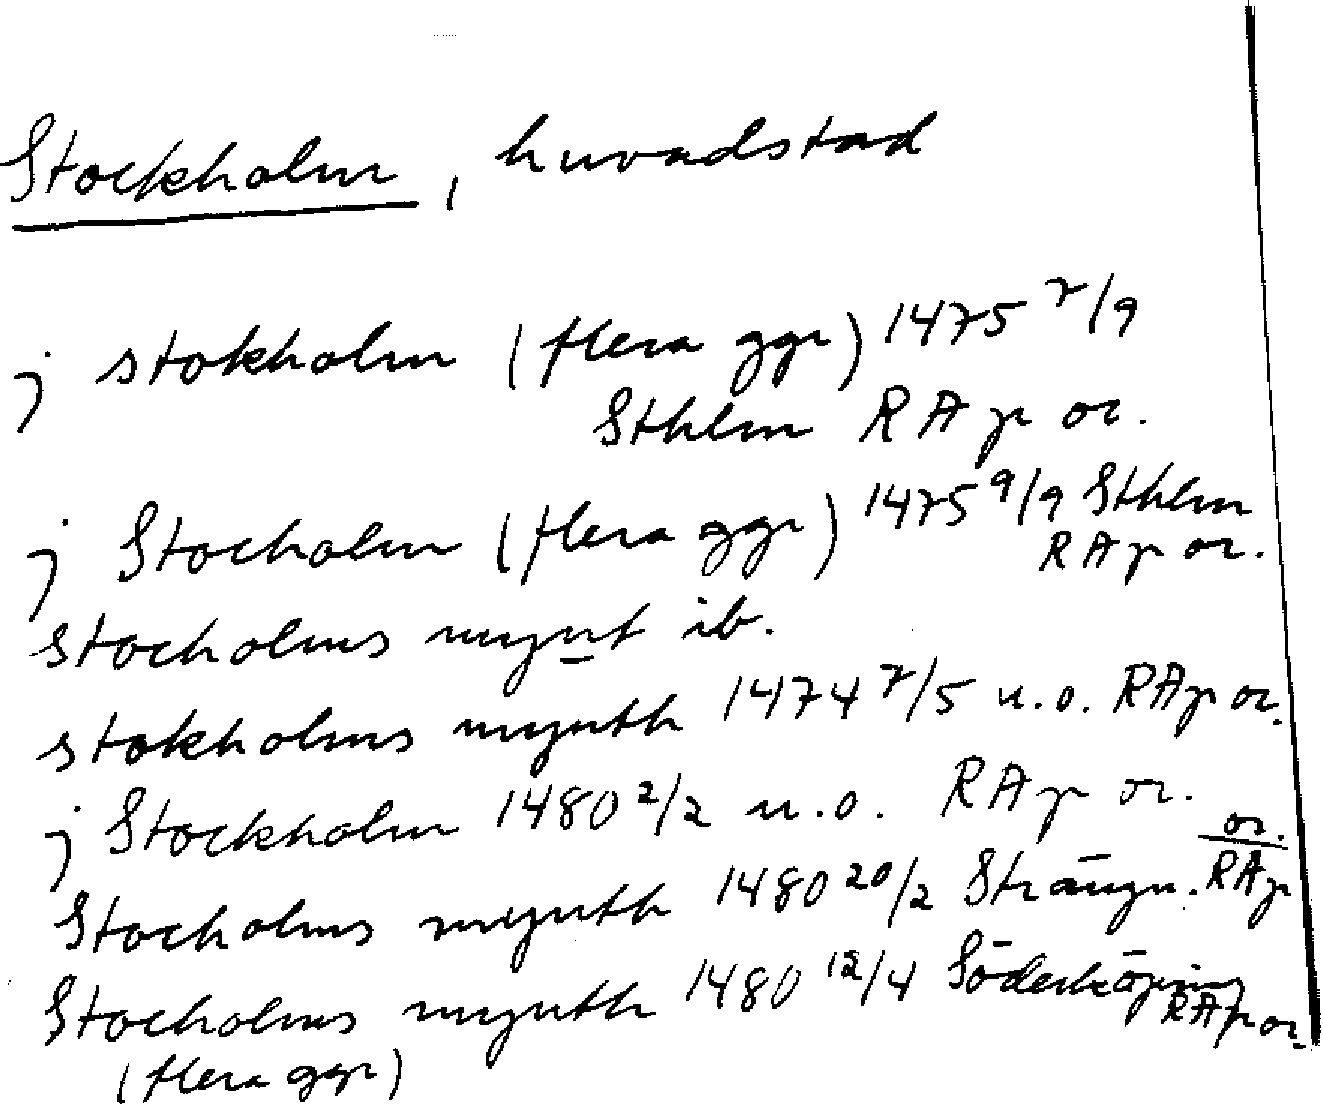 Stockholm, huvudstad
j stokholm (flera ggr) 1475 7/9
Sthlm RAp or.
j Stocholm (flera ggr) 1475 9/9 Sthlm
RAp or.
stocholms mynt ib.
stokholms mynth 1474 7/5 u.o. RAp or.
j Stockholm 1480 2/2 u.o. RAp or.
Stocholms mynth 1480 20/2 Strängn. RAp or.
Stocholms mynth 1480 12/4 Söderköping
RAp or.
(flera ggr)